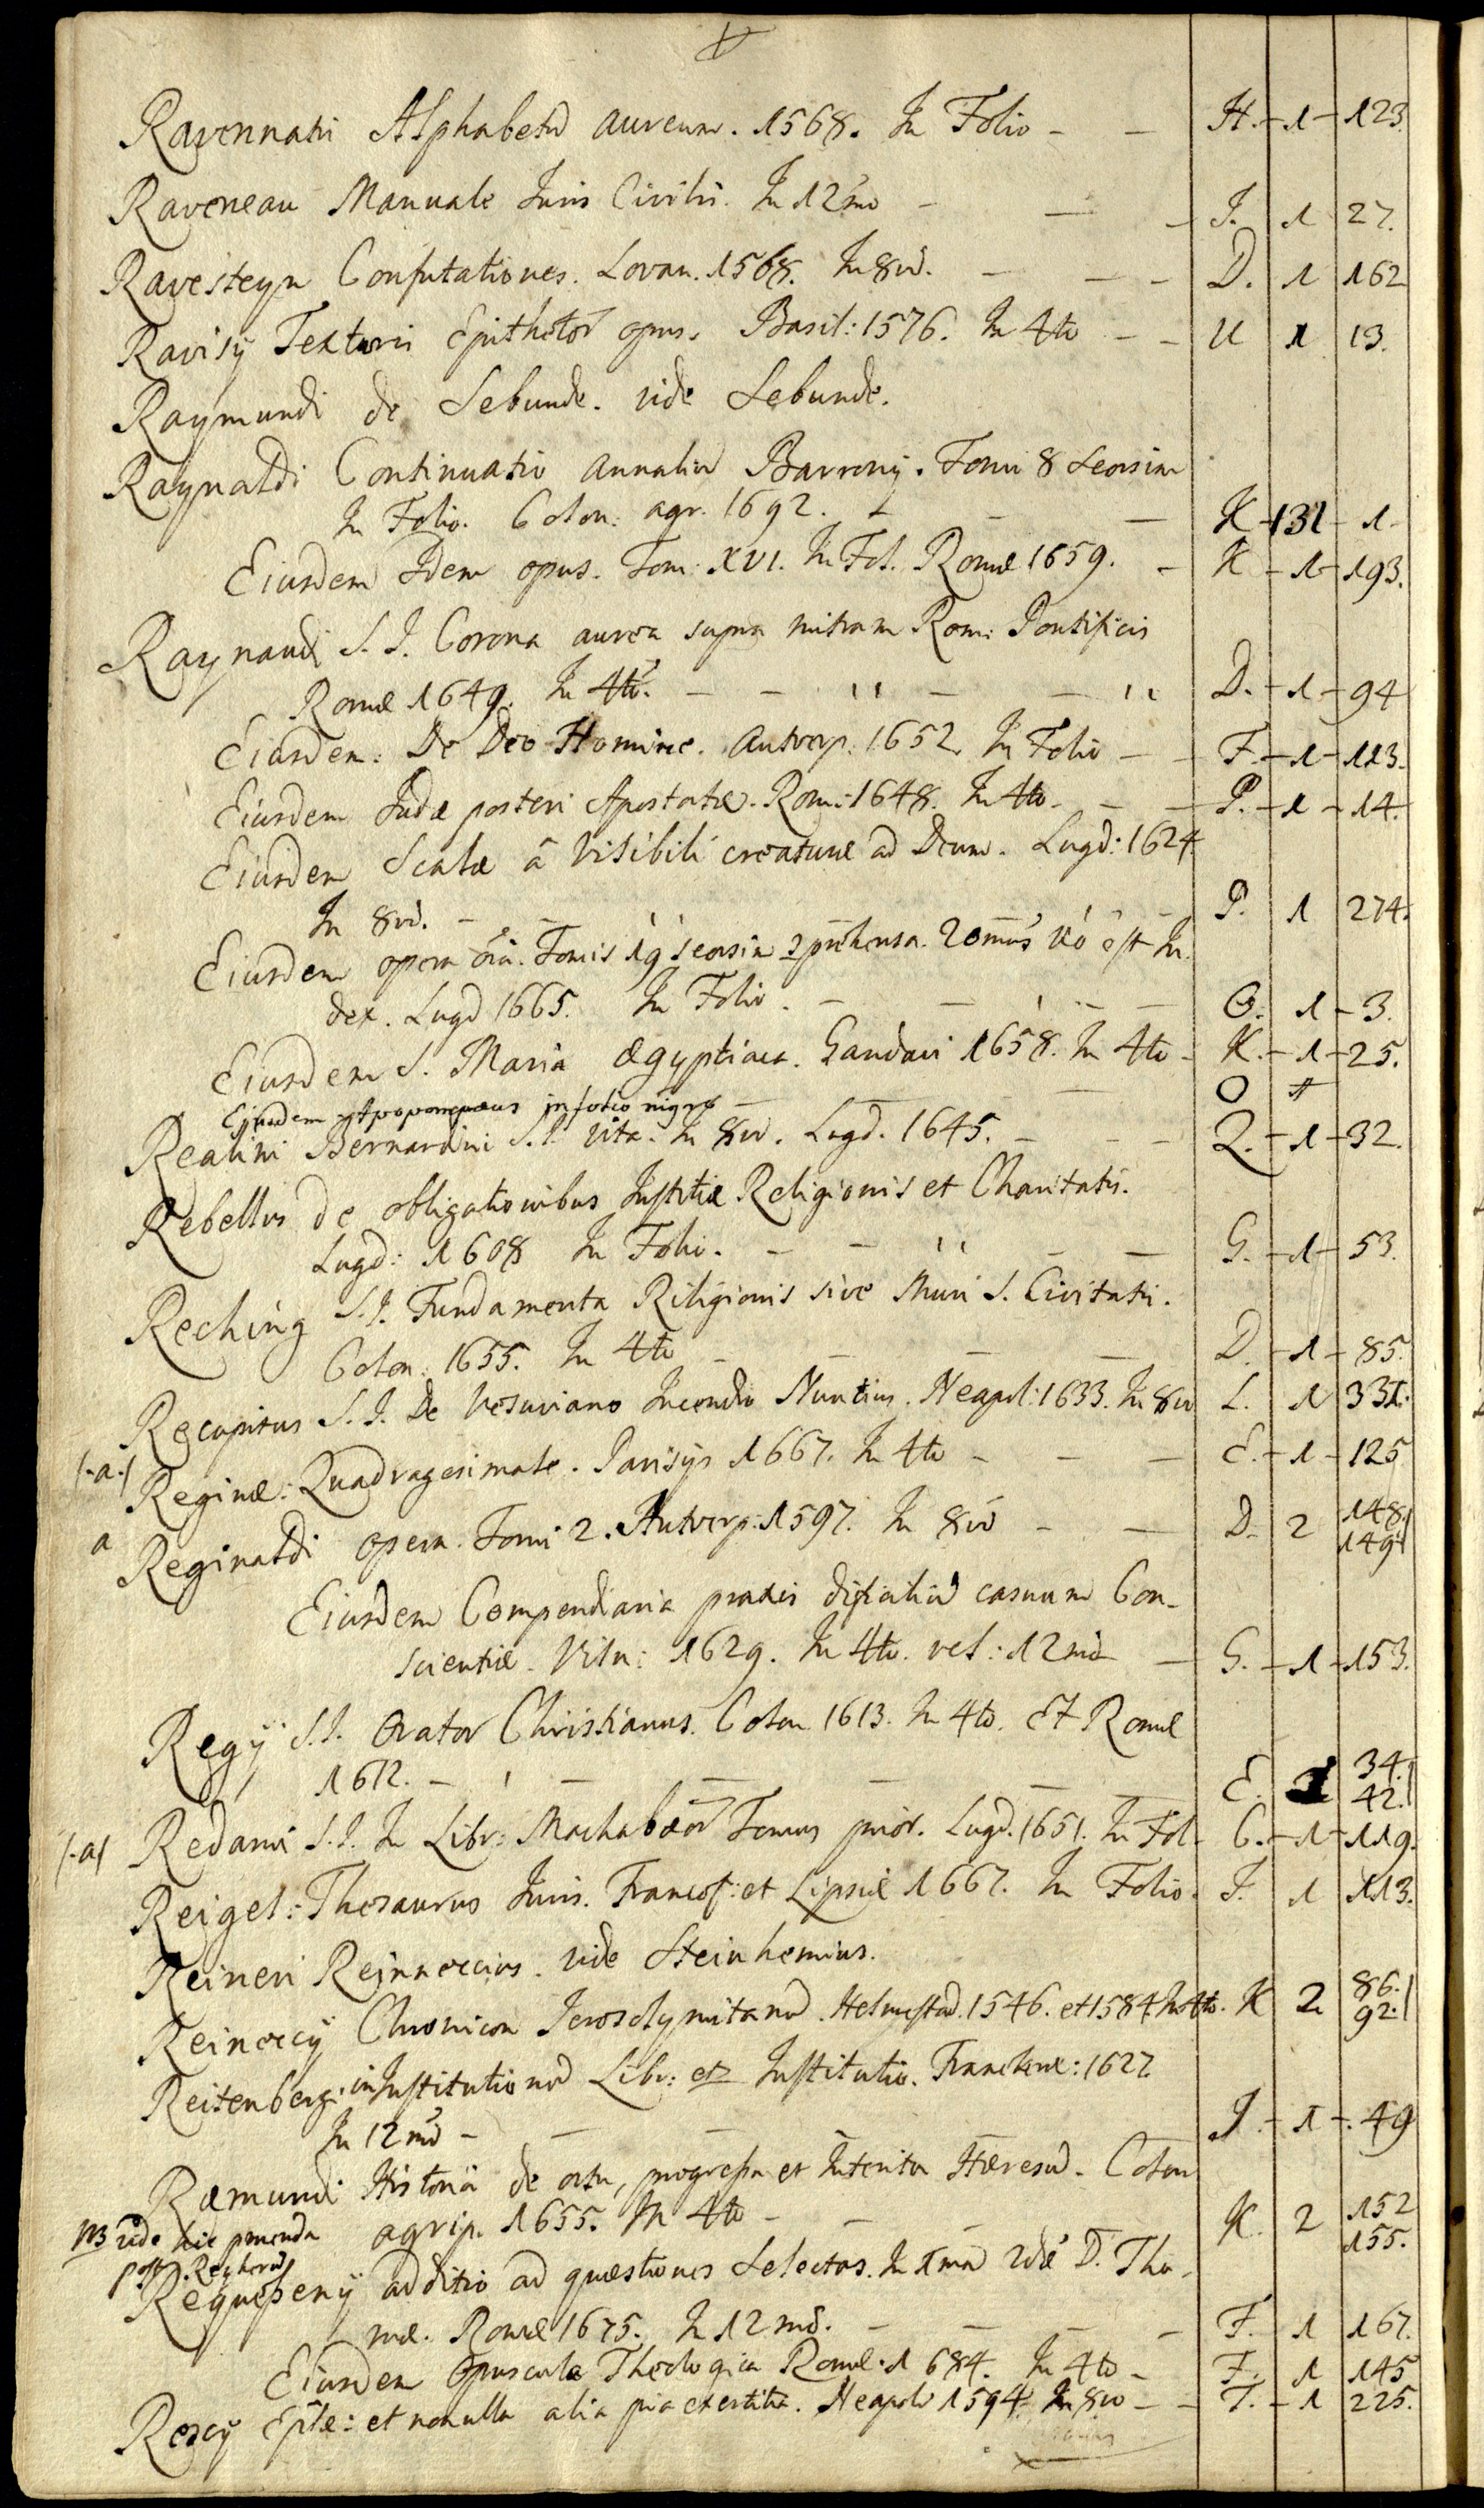 Ravennatis Alphabetũ aureum. 1568. In Folio - - H. - 1 - 123.
Raveneau Manuale Juris Civilis. In 12mo - - - J. 1 27.
Ravesteyn Confutationes. Lovan. 1568. In 8vo. - - - D. 1 162
Ravisÿ Textoris Epithetor opus. Basil: 1576. In 4to - - U 1 13.
Raymundi de Sebunde. vide Sebunde.
Raynaldi Continuatio Annaliũ Barronÿ. Tomi 8 seorsim
In Folio. Colon: agr. 1692. - - K - 131 - 1-
Eiusdem Idem opus. Tom: XVI. In Fol. Romæ 1659. - K - 1 - 193.
Raynaudi S. J. Corona aurea supra mitram Rom: Pontificis
Romæ 1649. In 4to. - - - - D. - 1 - 94
Eiusdem: De Deo Homine. Antverp: 1652. In Folio - - F. - 1 - 113.
Eiusdem Judæ posteri Apostatæ. Rom: 1648. In 4to. - - P. - 1 - 14.
Eiusdem Scalæ â visibili creaturæ ad Deum. Lugd: 1624.
In 8vo. - - P. 1 274.
Eiusdem opera oia. Tomis 19 seorsim pręhensa. 20mus vo est In
dex. Lugd 1665. In Folio. - - - - O. 1 - 3.
Eiusdem S. Maria Ægyptiaca. Gandavi 1658. In 4to - K. - 1 - 25.
Ejusdem Apopompæus in folio nigro - O
Realini Bernardini S. J. vita. In 8vo. Lugd. 1645. - - - Q. - 1 - 32.
Rebellus de obligationibus Justitiæ Religionis et Charitatis.
Lugd: 1608 In Folio. - - - - G. - 1 - 53.
Reching S. J. Fundamenta Religionis sive Muri S. Civitatis.
Colon: 1655. In 4to - - - - D. - 1 - 85.
Recupitus S. J. De Vesuviano Incendio Nuntius. Neapol: 1633. In 8vo L. 1 331.
(-a-) Reginæ: Quadragesimale. Parisÿs 1667. In 4to - - - E. - 1 - 125
a Reginaldi opera. Tomi 2. Antverp: 1597. In 8vo - - D. 2 148. 149
Eiusdem Compendiaria praxis dificiliũ casuum Con-
scientiæ. Viln: 1629. In 4to. vel: 12mo - G. - 1 - 153.
Regÿ S. J. Orator Christianus. Colon 1613. In 4to. Et Romæ
1612. - - - - - E. 34. 42.
(-a) Redani S. J. In Libr: Machabæor Tomus prior. Lugd. 1651. In Fol - C. - 1 - 119.
Reigel: Thesaurus Juris. Francof: et Lipsiæ 1667. In Folio. J. 1 113.
Reineri Reinneccius. vide Steinhemius.
Reineccÿ Chronicon Jerosolymitanũ. Helmestad. 1546. et 1584 In 4to. K 2 86. 92.
Reitenberg: in Institutionũ Libr: et Institutio. Franekeræ: 1627.
In 12mo - - - J - 1 - 49
Ræmundi Historia de ortu, progressu et Interitu Hæresũ. Colon
agrip. 1655. In 4to - - - K. 2 152 155.
NB vide hic ponenda
post Reyherũ
Requeseny additio ad quæstiones Selectas. In 1ma 2dæ D. Tho-
mæ. Romæ 1675. In 12mo. - - - - F. 1 167.
Eiusdem Opuscula Theologica Romæ: 1684. In 4to - F. 1 145
Rescÿ Eplæ: et nonulla alia pia et erudita. Neapoli 1594 In 8vo - - T. - 1 225.